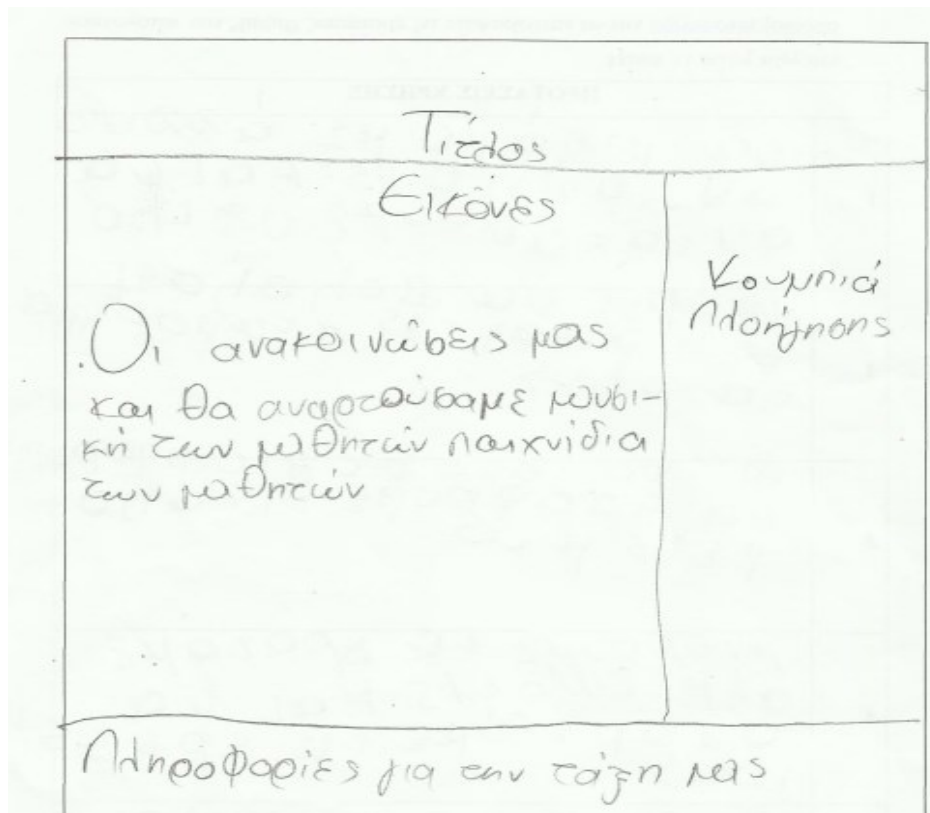 Τίτλος
Εικόνες
Οι ανακοινώσεις μας
και θα αναρτούσαμε μουσι-
κή των μαθητών παιχνίδια
των μαθητών
Κουμπιά
Πλοήγησης
Πληροφορίες για την τάξη μας